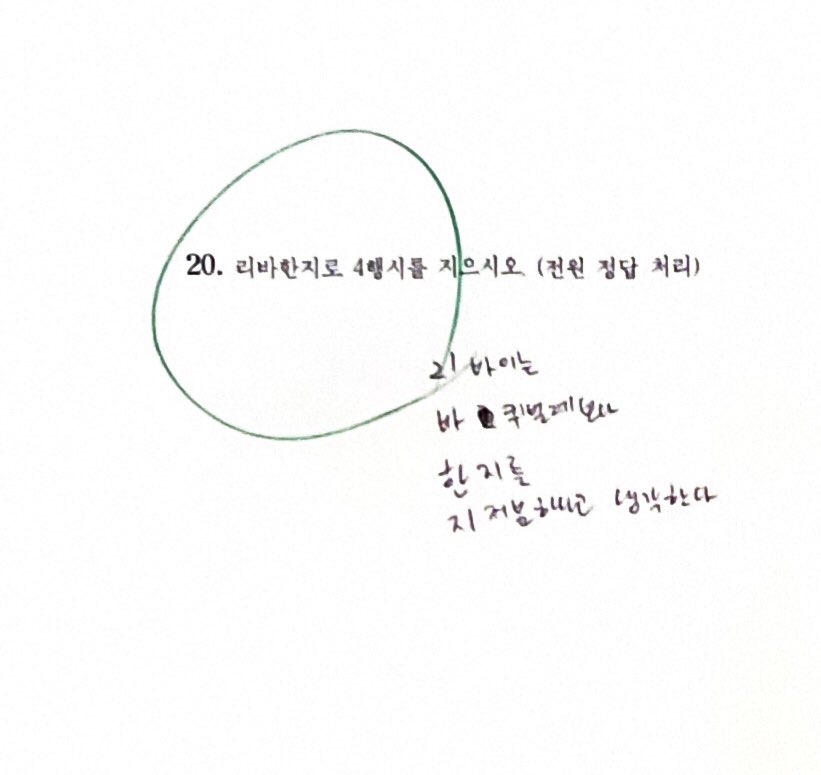 20. 리바한지로 4행시를 지으시오 (전원 정답 처리)
리 바이는
바 퀴벌레보다
한 지를
지 저분하다고 생각한다